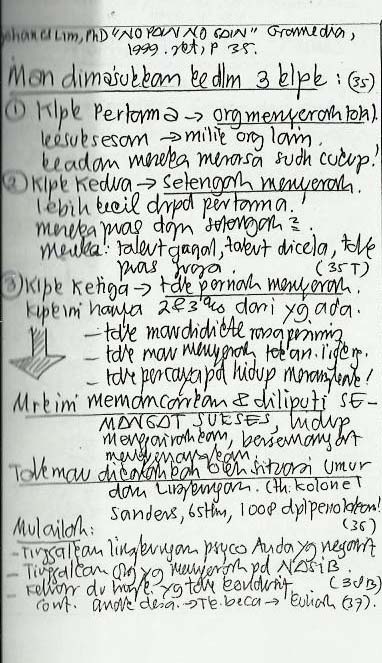 Johanes Lim, PhD "NO PAIN NO GAIN" Gramedia,
1999. Jkt, P 35.
Man dimasukkan kedlm 3 klpk: (35)
① Klpk Pertama → org menyerah total
kesuksesan → milik org lain.
keadan mereka merasa sudh cukup!
② Klpk Kedua → Setengah menyerah.
lebih kecil drpd pertama!
mereka puas dgn setengah².
mereka: takut gagal, takut dicela, tdk
puas juga. (35T)
③ Klpk Ketiga → tdk pernah menyerah.
Klpk ini hanya 2&3% dari yg ada.
- tdk mau didikte rasa pesimis
- tdk mau menyerah
- tdk percaya pd hidup
Mrk ini memancarkan & diliputi SE-
MANGAT SUKSES, hidup
menggairahkan, bersemangat
menyenangkan
Tdk mau dikalahkan oleh situasi umur
dan Lingkungan. (th. kolonel
Sanders, 65thn, 1008 dpl penolakan!
(36)
Mulailah:
- Tinggalkan lingkungan psyco Anda yg negatif
- Tinggalkan org yg menyerah pd NASIB.
- Keluar yg tdk kondusif. (36B)
cont. anak desa. → Tk. beca → kuliah (37).